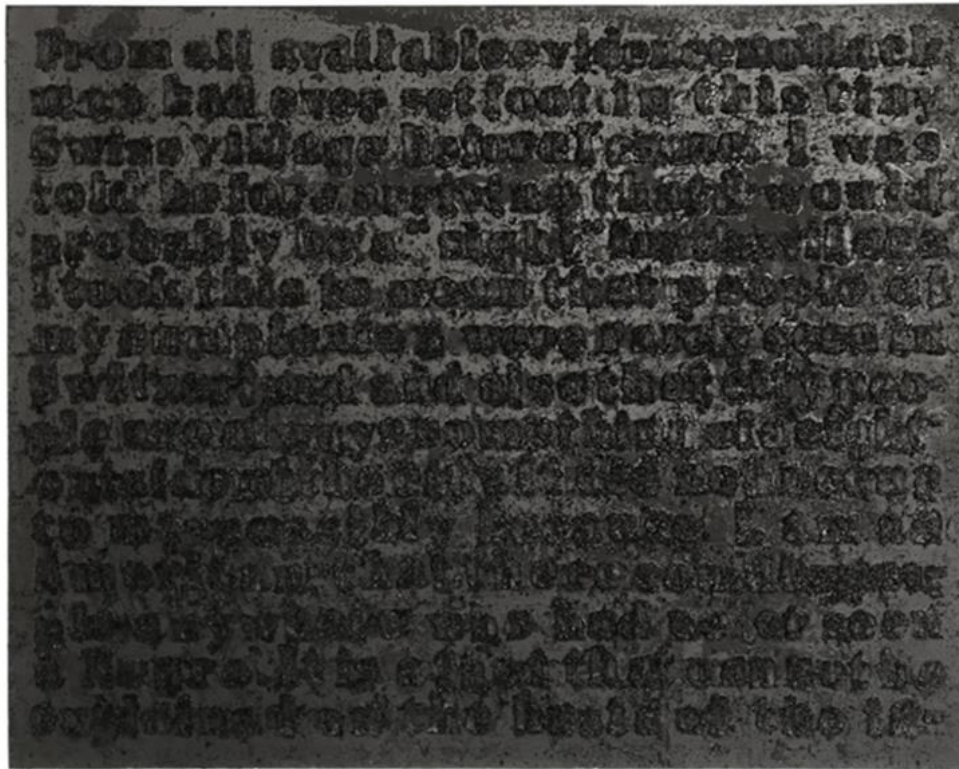 From all available evidence no black
man had ever set foot in this tiny
Swiss village before I came. I was
told before arriving that I would
probably be a "sight" for the village
I took this to mean that people of
my complexion were rarely seen in
Switzerland and also that city peo-
ple are always
outside of the city
to me possibly because I am an
American that there could be peo-
ple anywhere who had never seen
a Negro. It is a fact that cannot be
explained on the basis of the in-